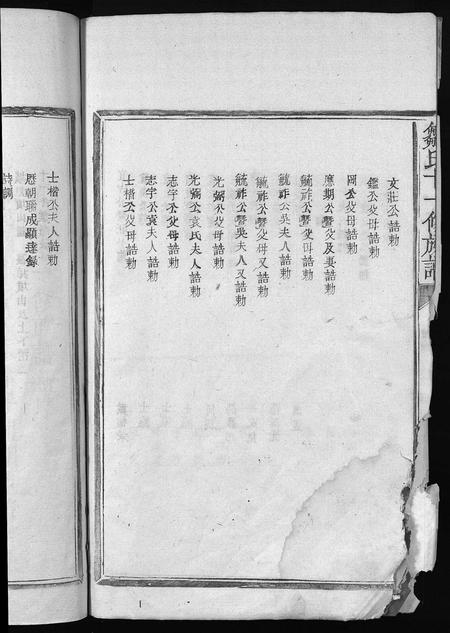 氏十一修族譜
文莊公誥勅
鑑公父母誥勅
岡公父母誥勅
應期公暨父及妻誥勅
毓祚公暨父母誥勅
毓祚公吳夫人誥勅
毓祚公暨父又誥勅
毓祚公暨吳夫人又誥勅
光弼公父母誥勅
光弼公袁氏夫人誥勅
志宇公父母誥勅
志宇公袁夫人誥勅
士楷公父母誥勅
士楷公夫人誥勅
歷朝聯成顯達錄
詩詞